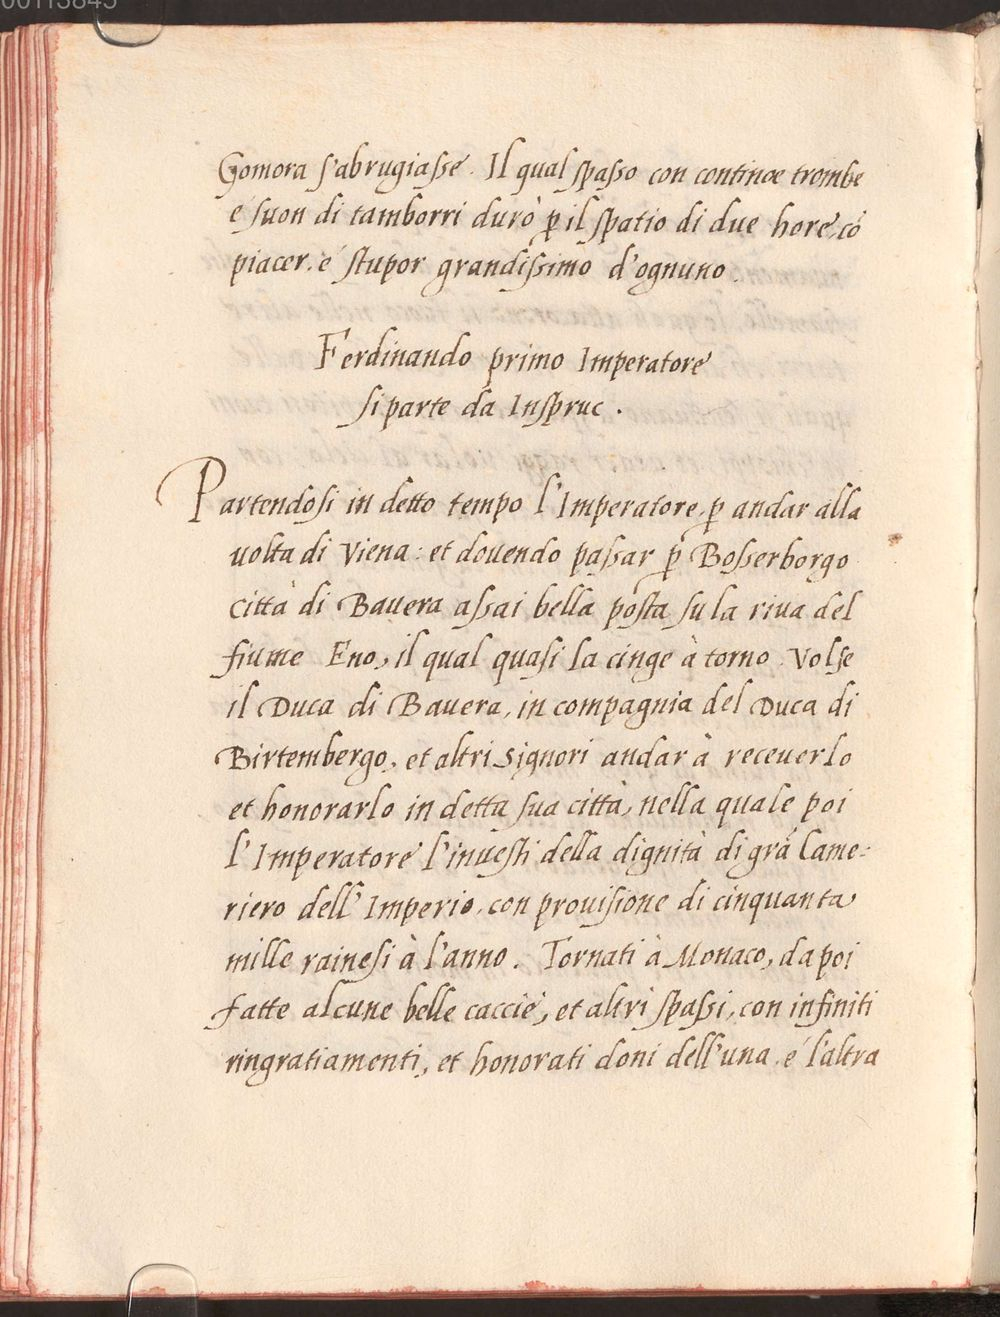 Gomora s'abrugiasse. Il qual spasso con continoe trombe
e suon di tamborri durò ꝑ il spatio di due hore, cõ
piacer, e stupor grandissimo d'ognuno.
Ferdinando primo Imperatore
si parte da Inspruc.
Partendosi in detto tempo l'Imperatore, ꝑ andar alla
uolta di Viena: et douendo passar ꝑ Bosserborgo
città di Bauera assai bella posta su la riua del
fiume Eno, il qual quasi la cinge à torno. Volse
il Duca di Bauera, in compagnia del Duca di
Birtembergo, et altri Signori andar à receuerlo
et honorarlo in detta sua città, nella quale poi
l'Imperatore l'inuestì della dignità di grã Came-
riero dell'Imperio, con prouisione di cinquanta
mille rainesi à l'anno. Tornati à Monaco, da poi
fatte alcune belle caccie, et altri spassi, con infiniti
ringratiamenti, et honorati doni dell'una, e l'altra